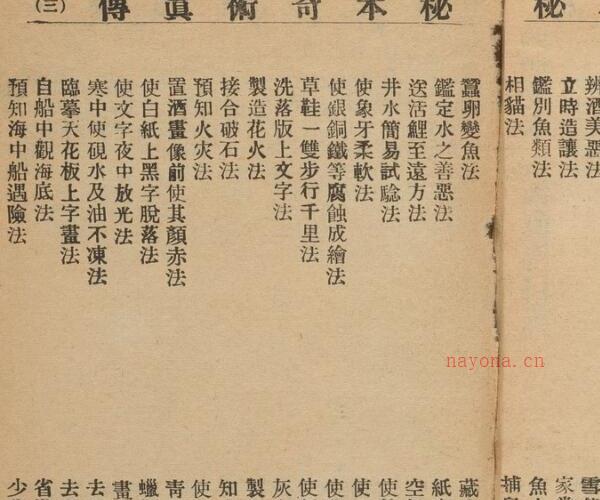 秘
辨酒美惡法
立時造讓法
鑑別魚類法
相貓法
家
魚
捕
秘本奇術眞傳
(三)
蠶卵變魚法
鑑定水之善惡法
送活鯉至遠方法
井水簡易試騐法
使象牙柔軟法
使銀銅鐵等腐蝕成繪法
草鞋一雙步行千里法
洗落版上文字法
製造花火法
接合破石法
預知火灾法
置酒畫像前使其顏赤法
使白紙上黑字脫落法
使文字夜中放光法
寒中使硯水及油不凍法
臨摹天花板上字畫法
自船中觀海底法
預知海中船遇險法
藏
紙
空
使
使
使
使
灰
製
知
使
靑
蠟
畫
去
去
省
少
nayona.cn